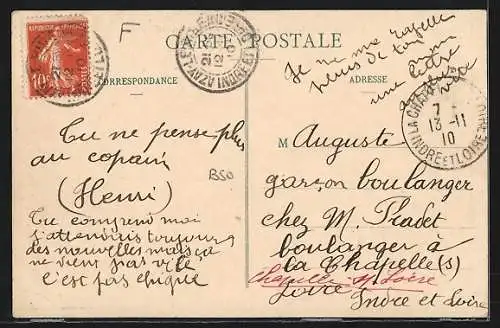 F
CARTE POSTALE
CORRESPONDANCE
ADRESSE
Je ne me rapelle
plus de ton
nom
une lettre
RÉPUBLIQUE FRANÇAISE
10
AZAY-LE-RIDEAU
INDRE ET LOIRE
LA CHAPELLE
7
13-11
10
INDRE ET LOIRE
Tu ne pense plus
au copain
(Henri)
B50
Tu comprend moi
j'attendais toujours
des nouvelles mais ça
ne vient pas vite
c'est pas chique
M Auguste
garçon boulanger
chez M. Pradet
boulanger à
La Chapelle (s)
Chapelle s/ Loire
Loire
Indre et Loire